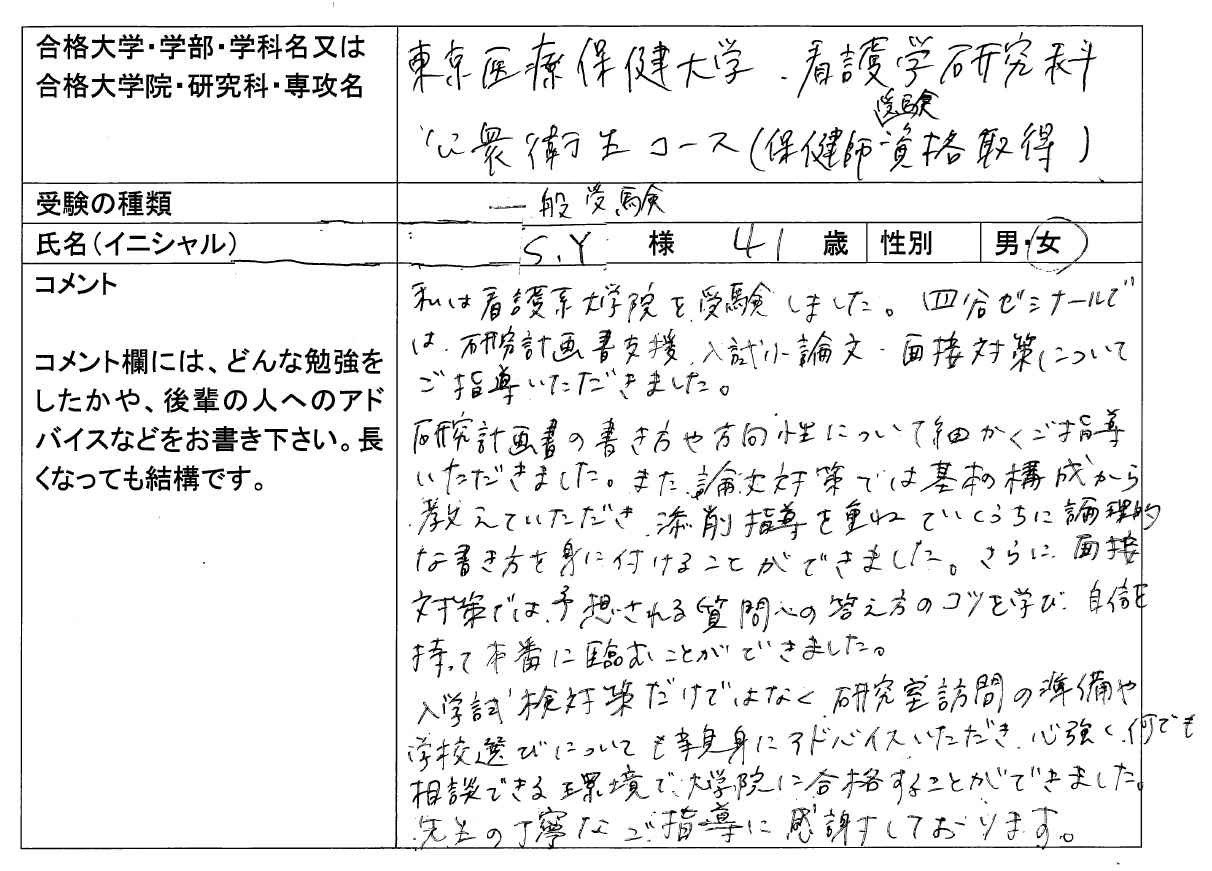 合格大学・学部・学科名又は
合格大学院・研究科・専攻名
東京医療保健大学 . 看護学研究科
受験
公衆衛生コース(保健師資格取得)
受験の種類
一般受験
氏名(イニシャル)
S.Y 様 41 歳 性別 男・女
コメント
コメント欄には、どんな勉強を
したかや、後輩の人へのアド
バイスなどをお書き下さい。長
くなっても結構です。
私は看護系大学院を受験しました。四谷ゼミナールで
は、研究計画書支援、入試小論文・面接対策について
ご指導いただきました。
研究計画書の書き方や方向性について細かくご指導
いただきました。また、論文対策では基本の構成から
教えていただき、添削指導を重ねていくうちに論理的
な書き方を身に付けることができました。さらに、面接
対策では、予想される質問への答え方のコツを学び、自信を
持って本番に臨むことができました。
入学試検対策だけではなく、研究室訪問の準備や
学校選びについても親身にアドバイスいただき、心強く、何でも
相談できる環境で、大学院に合格することができました。
先生の丁寧なご指導に感謝しております。